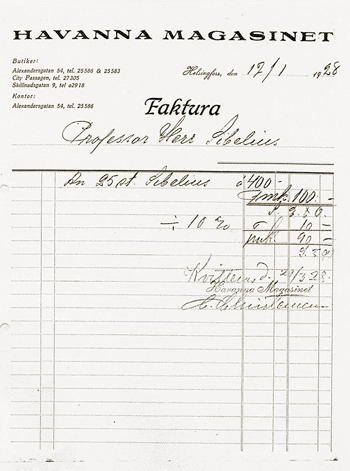 HAVANNA MAGASINET
Butiker:
Alexandersgatan 54, tel. 25586 & 25583
City Passagen, tel. 27305
Skillnadsgatan 9, tel 62918
Kontor:
Alexandersgatan 54, tel. 25586
Helsingfors, den 12/1 1928
Faktura
Professor Herr Sibelius
An 25 st. Sibelius à 400.-
Fmk. 100.-
÷ 10 %
10 -
Fmk. 90 -
Kvitteras d.
Havanna Magasinet